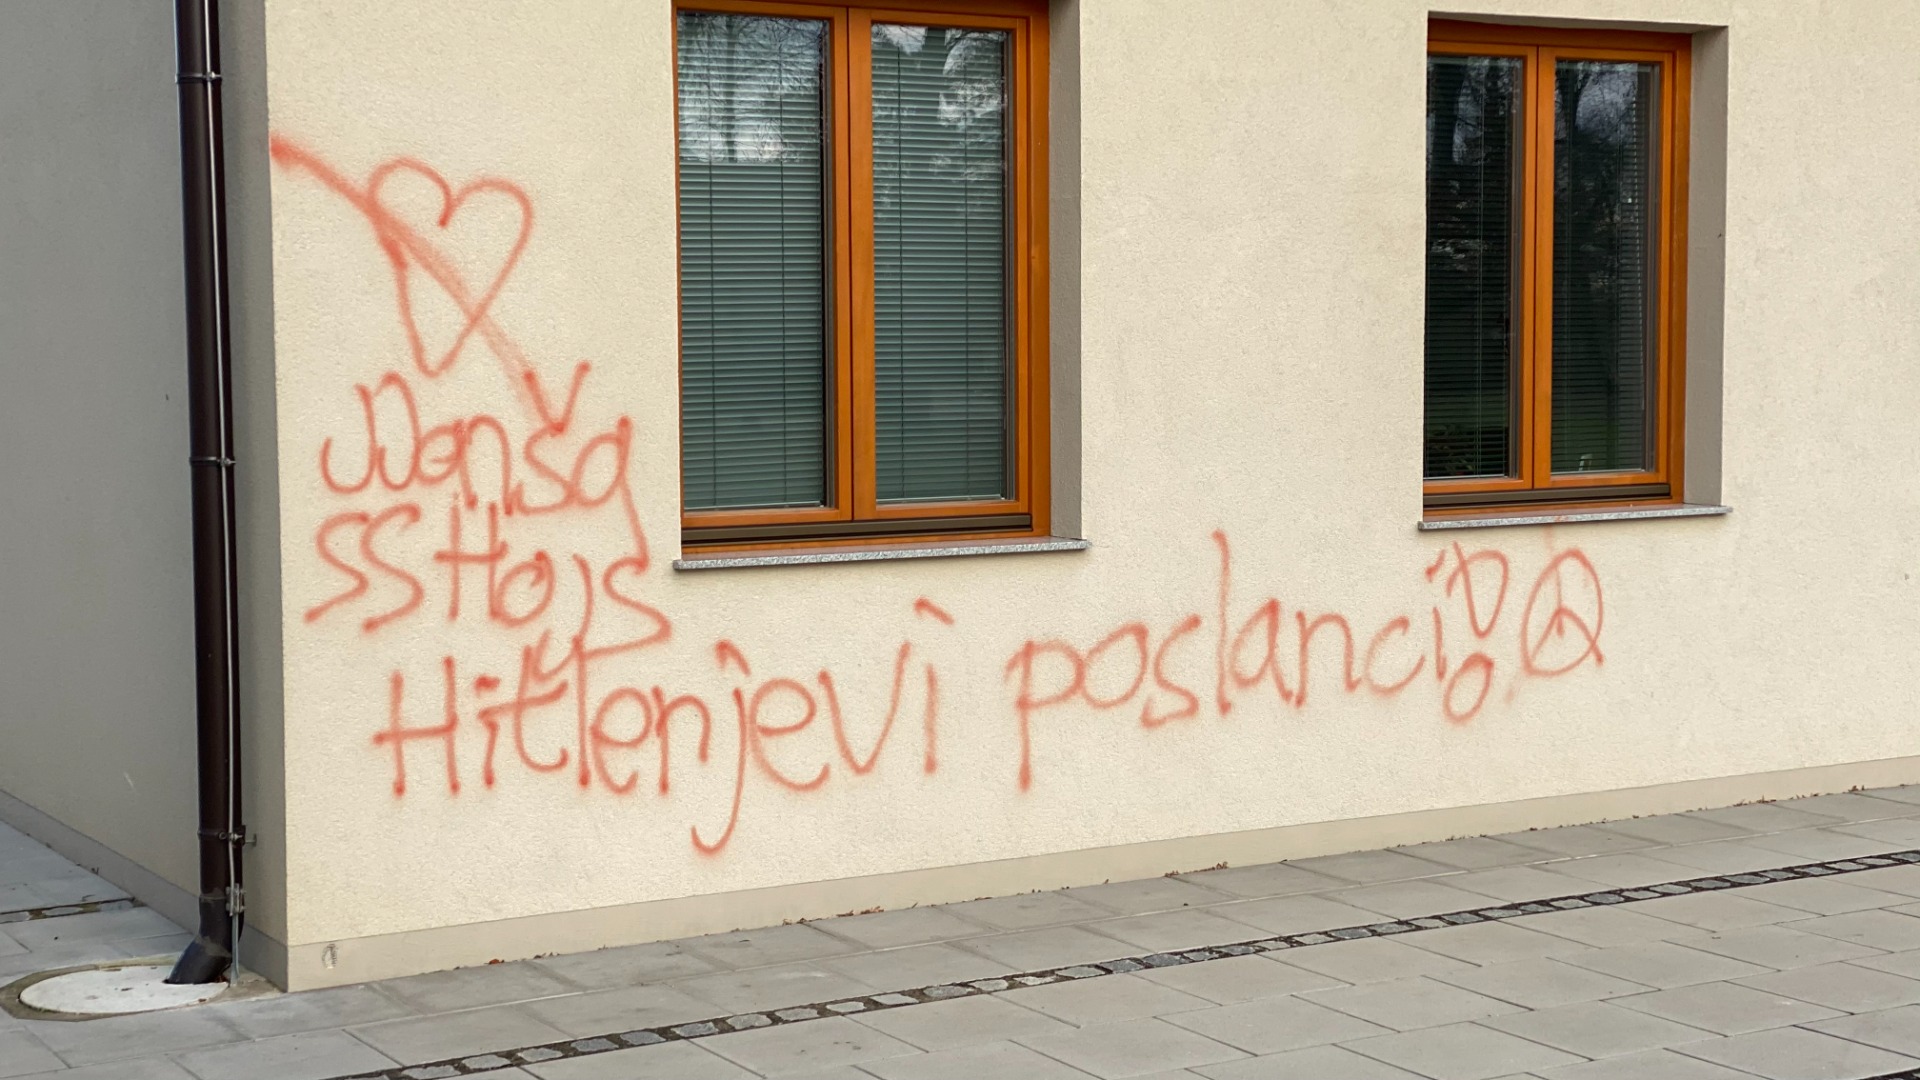 JJanša
SS Hojs
Hitlerjevi poslanci!